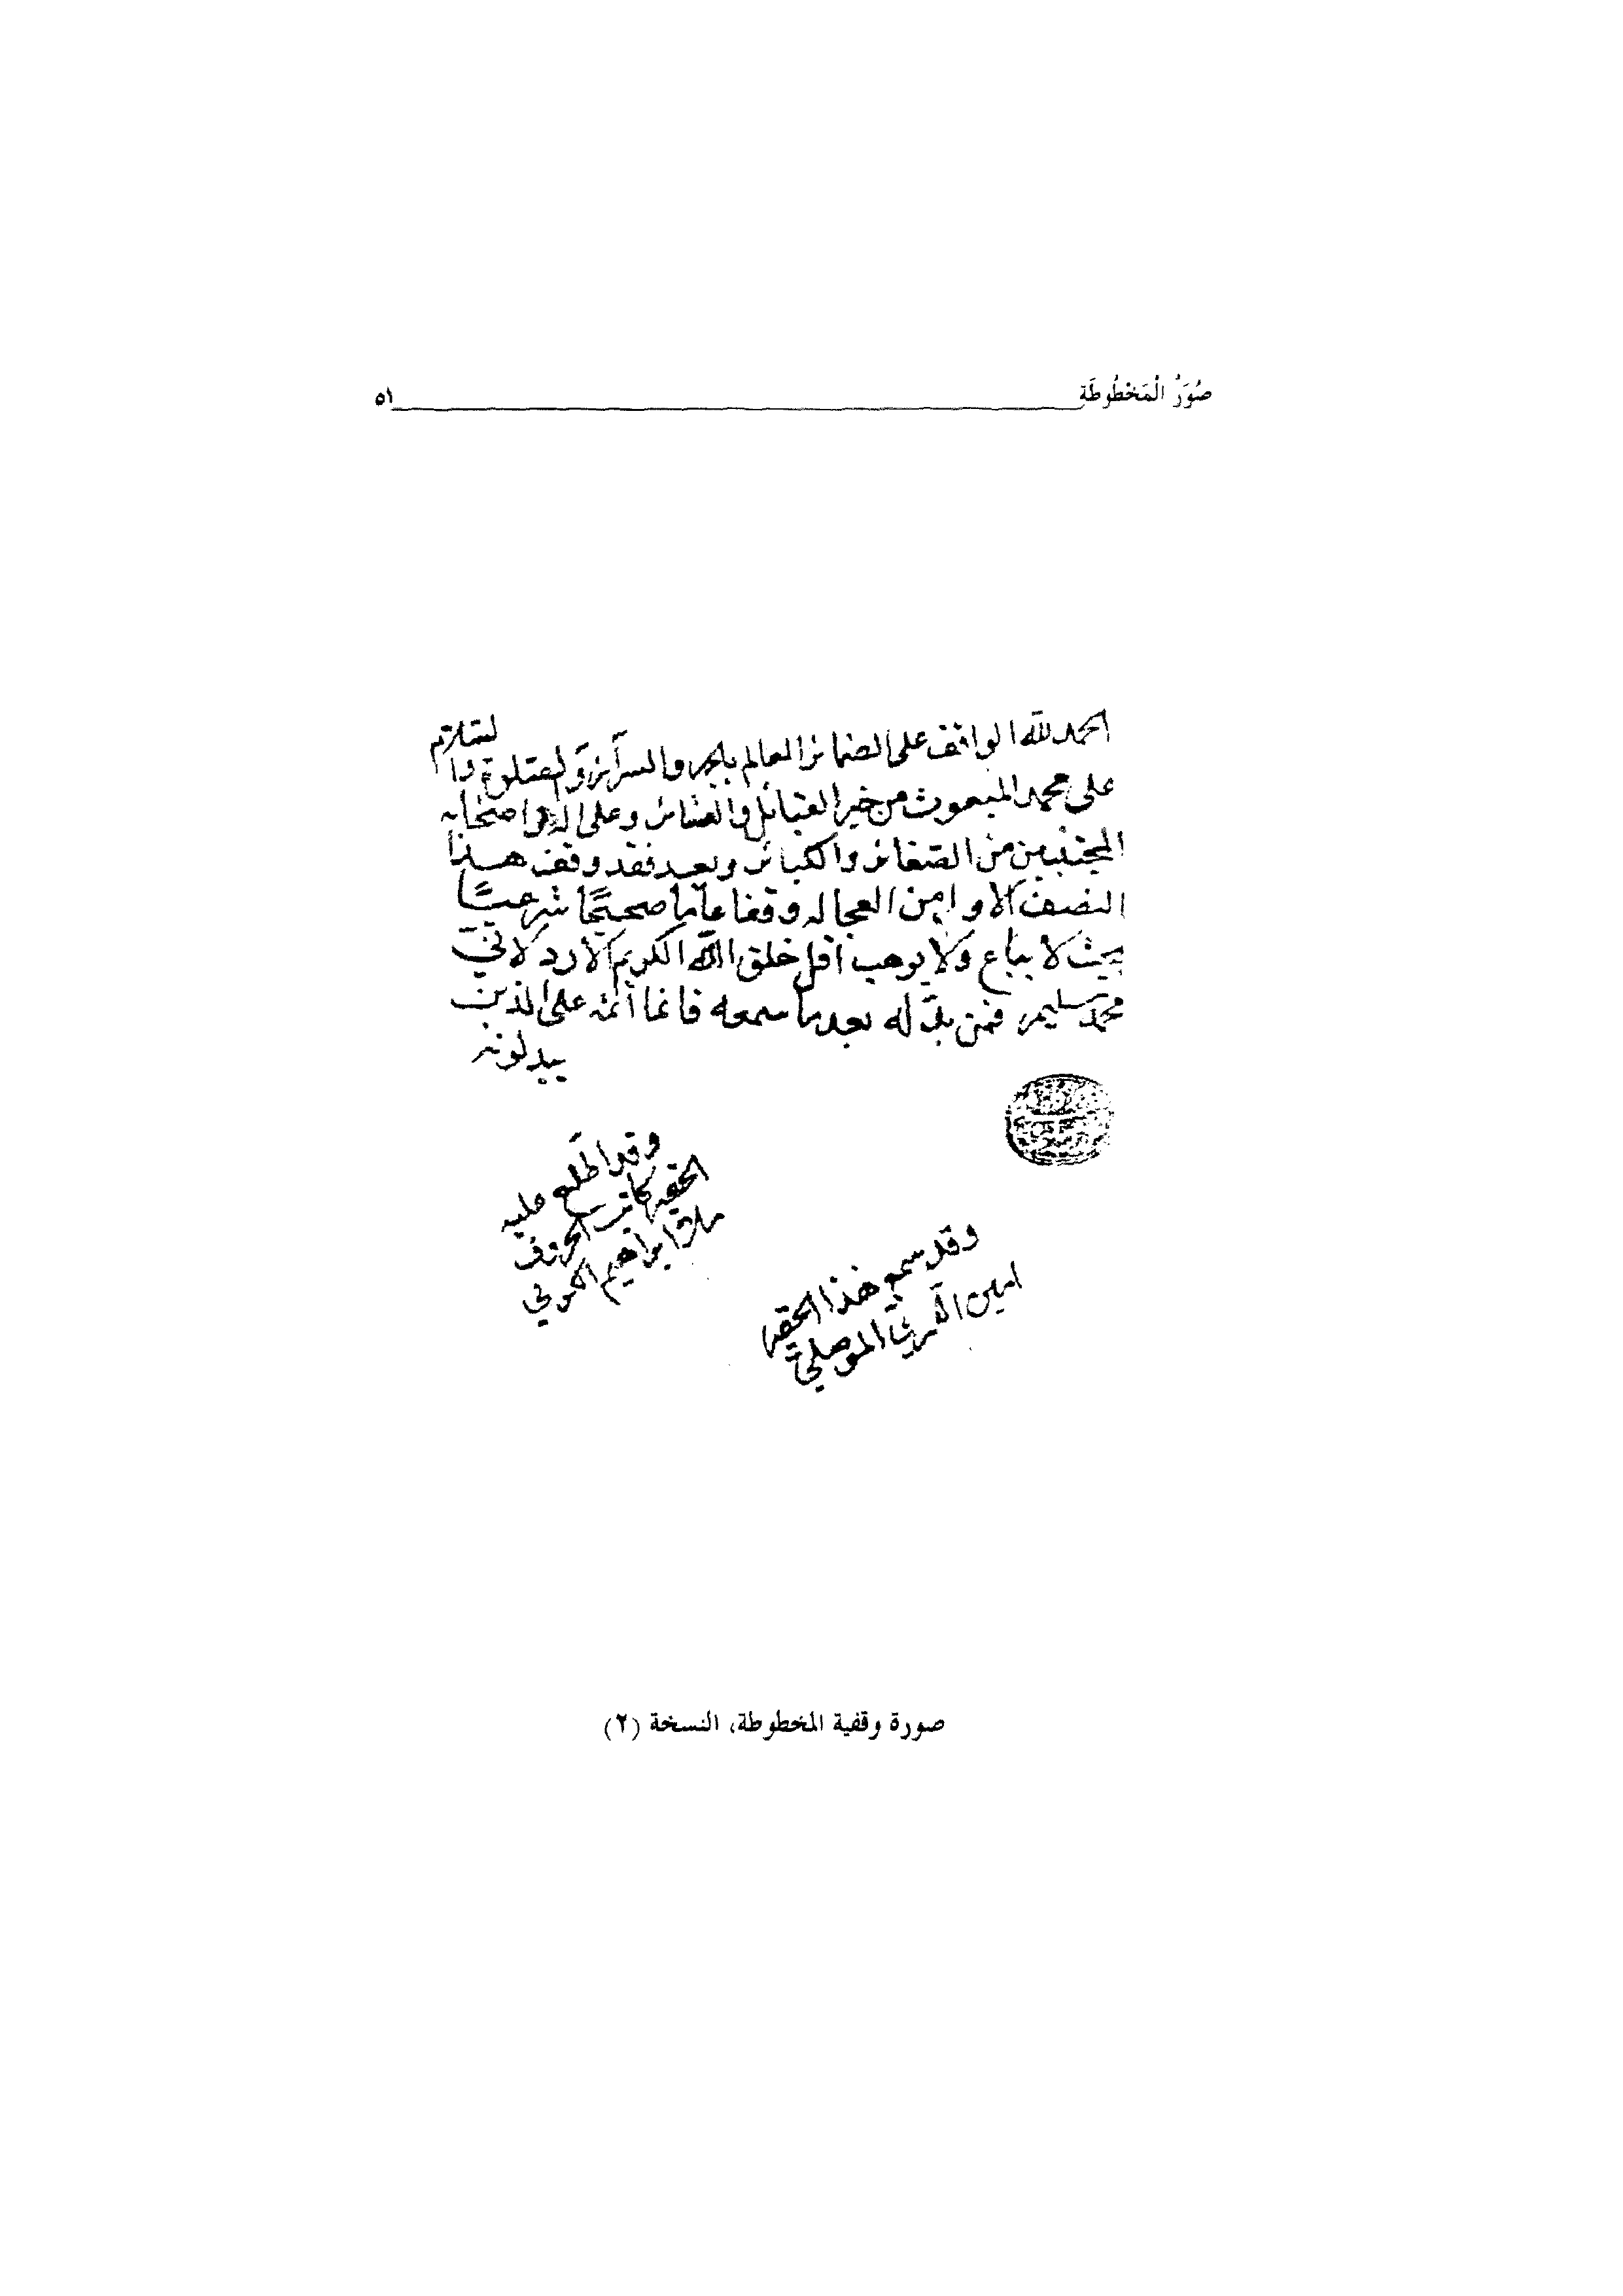 صُوَرُ الْمَخْطُوطَة ٥١
الحمد لله الواقف على الضمائر العالم بالجهر والسرآئر والصلوة والسلام
على محمد المبعوث من خير القبائل والعشائر وعلى اله واصحابه
المجتنبين من الصغائر والكبائر وبعد فقد وقف هذا
النصف الاول من العجاله وقفا صحيحًا شرعيًّا
بحيث لا يباع ولا يوهب اقل خلق الله الكريم
محمد سليم فمن بدّله بعد ما سمعه فانما اثمه على الذين
يبدلونه
وقد اطلع عليه
الحقير كاتب الحروف
ملا ابراهيم
وقد سمع هذا الحقير
امين الموصلي
صورة وقفية المخطوطة، النسخة (٢)